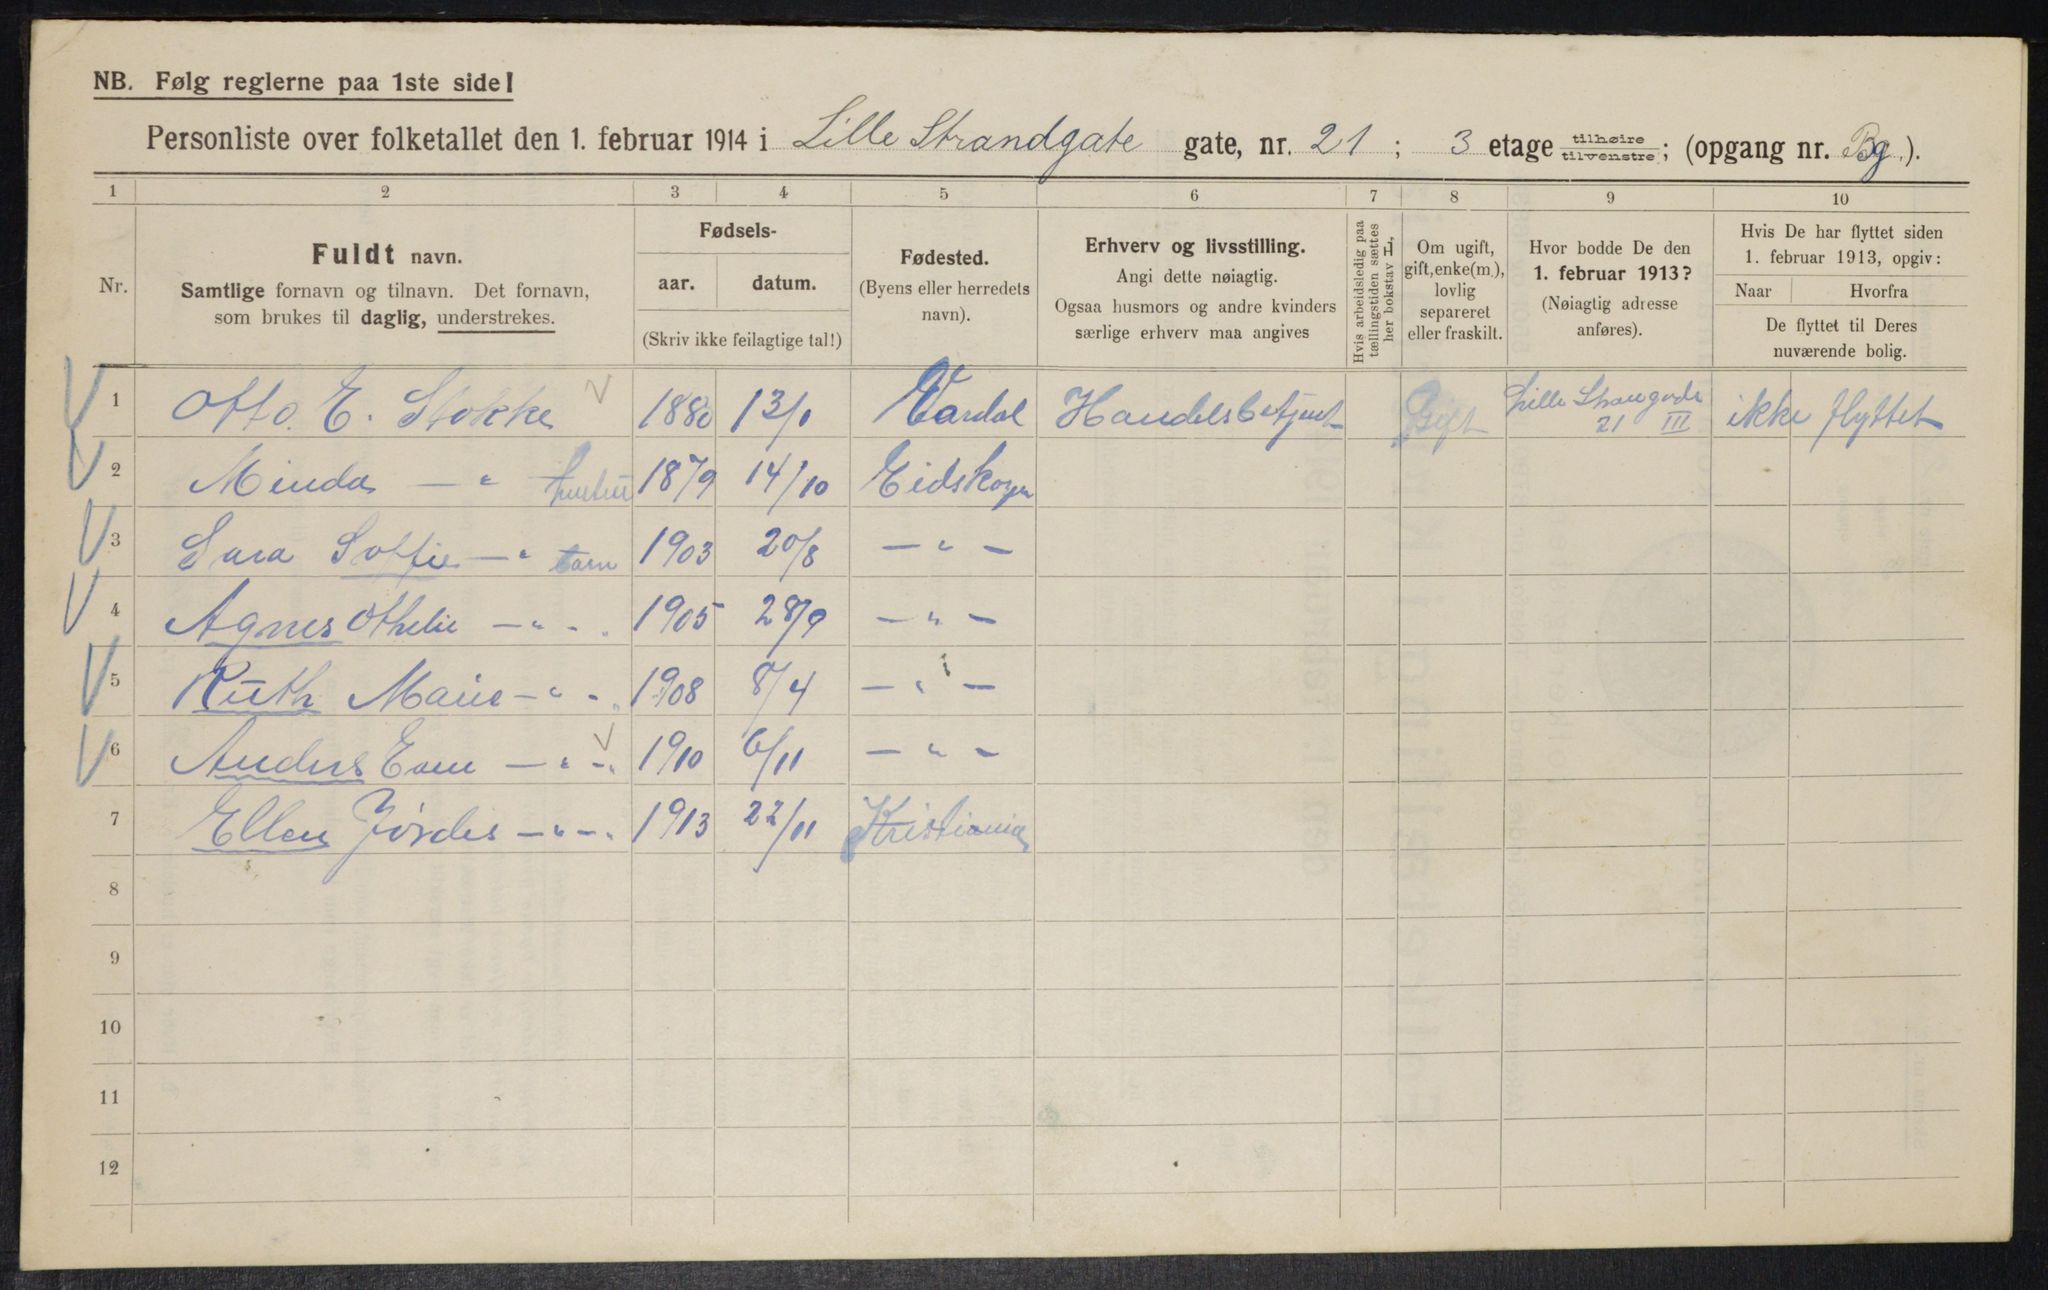 NB. Følg reglerne paa 1ste side!
Personliste over folketallet den 1. februar 1914 i Lille Strandgate gate, nr. 21 ; 3 etage tilhøire / tilvenstre ; (opgang nr. Bg.).
1 2 3 4 5 6 7 8 9 10
Nr.
Fuldt navn.
Samtlige fornavn og tilnavn. Det fornavn,
som brukes til daglig, understrekes.
Fødsels-
aar. datum.
(Skriv ikke feilagtige tal!)
Fødested.
(Byens eller herredets
navn).
Erhverv og livsstilling.
Angi dette nøiagtig.
Ogsaa husmors og andre kvinders
særlige erhverv maa angives
Hvis arbeidsledig paa
tællingstiden sættes
her bokstav L,
Om ugift,
gift, enke(m.),
lovlig
separeret
eller fraskilt.
Hvor bodde De den
1. februar 1913?
(Nøiagtig adresse
anføres).
Hvis De har flyttet siden
1. februar 1913, opgiv:
Naar Hvorfra
De flyttet til Deres
nuværende bolig.
1 Otto. E. Stokke 1880 13/1 Vardal Handelsbetjent Gift Lille Strangade 21 III ikke flyttet
2 Minda — " hustru 1879 14/10 Eidskogn
3 Sara Soffie — " barn 1903 20/8 — " —
4 Agnes Othelie — " - " 1905 28/9 — " —
5 Ruth Marie — " - " 1908 8/4 — " —
6 Anders - " - " 1910 6/11 — " —
7 Ellen Jørdis — " - " 1913 22/11 Kristiania
8
9
10
11
12